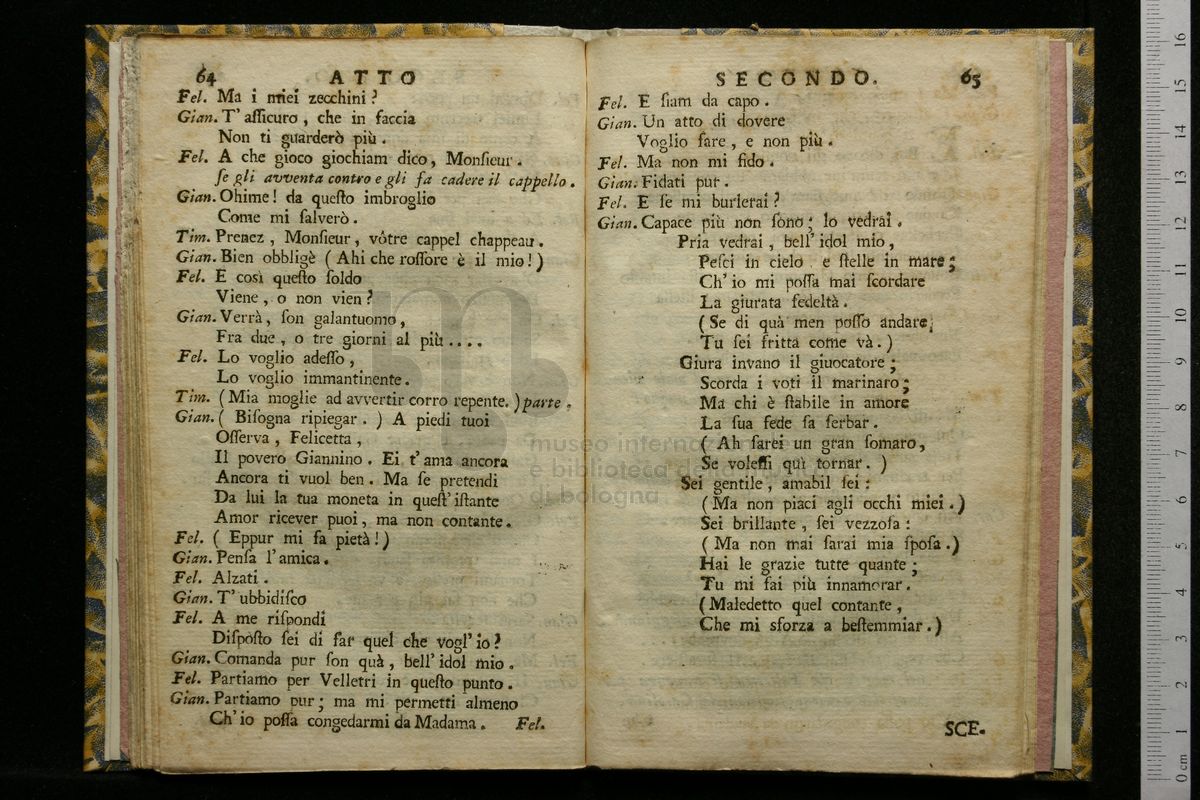 64 ATTO
Fel. Ma i miei zecchini?
Gian. T' aſſicuro, che in faccia
Non ti guarderò più.
Fel. A che gioco giochiam dico, Monſieur.
ſe gli avventa contro e gli fa cadere il cappello.
Gian. Ohime! da queſto imbroglio
Come mi ſalverò.
Tim. Prenez, Monſieur, vôtre cappel chappeau.
Gian. Bien obbligè (Ahi che roſſore è il mio!)
Fel. E così queſto ſoldo
Viene, o non vien?
Gian. Verrà, ſon galantuomo,
Fra due, o tre giorni al più....
Fel. Lo voglio adeſſo,
Lo voglio immantinente.
Tim. (Mia moglie ad avvertir corro repente.) parte.
Gian. ( Biſogna ripiegar. ) A piedi tuoi
Oſſerva, Felicetta,
Il povero Giannino. Ei t' ama ancora
Ancora ti vuol ben. Ma ſe pretendi
Da lui la tua moneta in queſt' iſtante
Amor ricever puoi, ma non contante.
Fel. ( Eppur mi fa pietà!)
Gian. Penſa l'amica.
Fel. Alzati.
Gian. T' ubbidiſco
Fel. A me riſpondi
Diſpoſto ſei di far quel che vogl' io?
Gian. Comanda pur ſon quà, bell' idol mio.
Fel. Partiamo per Velletri in queſto punto.
Gian. Partiamo pur; ma mi permetti almeno
Ch' io poſſa congedarmi da Madama. Fel.
SECONDO. 65
Fel. E ſiam da capo.
Gian. Un atto di dovere
Voglio fare, e non più.
Fel. Ma non mi fido.
Gian. Fidati pur.
Fel. E ſe mi burlerai?
Gian. Capace più non ſono; lo vedrai.
Pria vedrai, bell' idol mio,
Peſci in cielo e ſtelle in mare;
Ch' io mi poſſa mai ſcordare
La giurata fedeltà.
(Se di quà men poſſo andare,
Tu ſei fritta come và.)
Giura invano il giuocatore;
Scorda i voti il marinaro;
Ma chi è ſtabile in amore
La ſua fede ſa ſerbar.
( Ah farei un gran ſomaro,
Se voleſſi quì tornar. )
Sei gentile, amabil ſei:
(Ma non piaci agli occhi miei.)
Sei brillante, ſei vezzoſa:
( Ma non mai ſarai mia ſpoſa.)
Hai le grazie tutte quante;
Tu mi fai più innamorar.
(Maledetto quel contante,
Che mi sforza a beſtemmiar.)
SCE.
museo internazionale
e biblioteca della musica
di bologna
0 cm 1 2 3 4 5 6 7 8 9 10 11 12 13 14 15 16